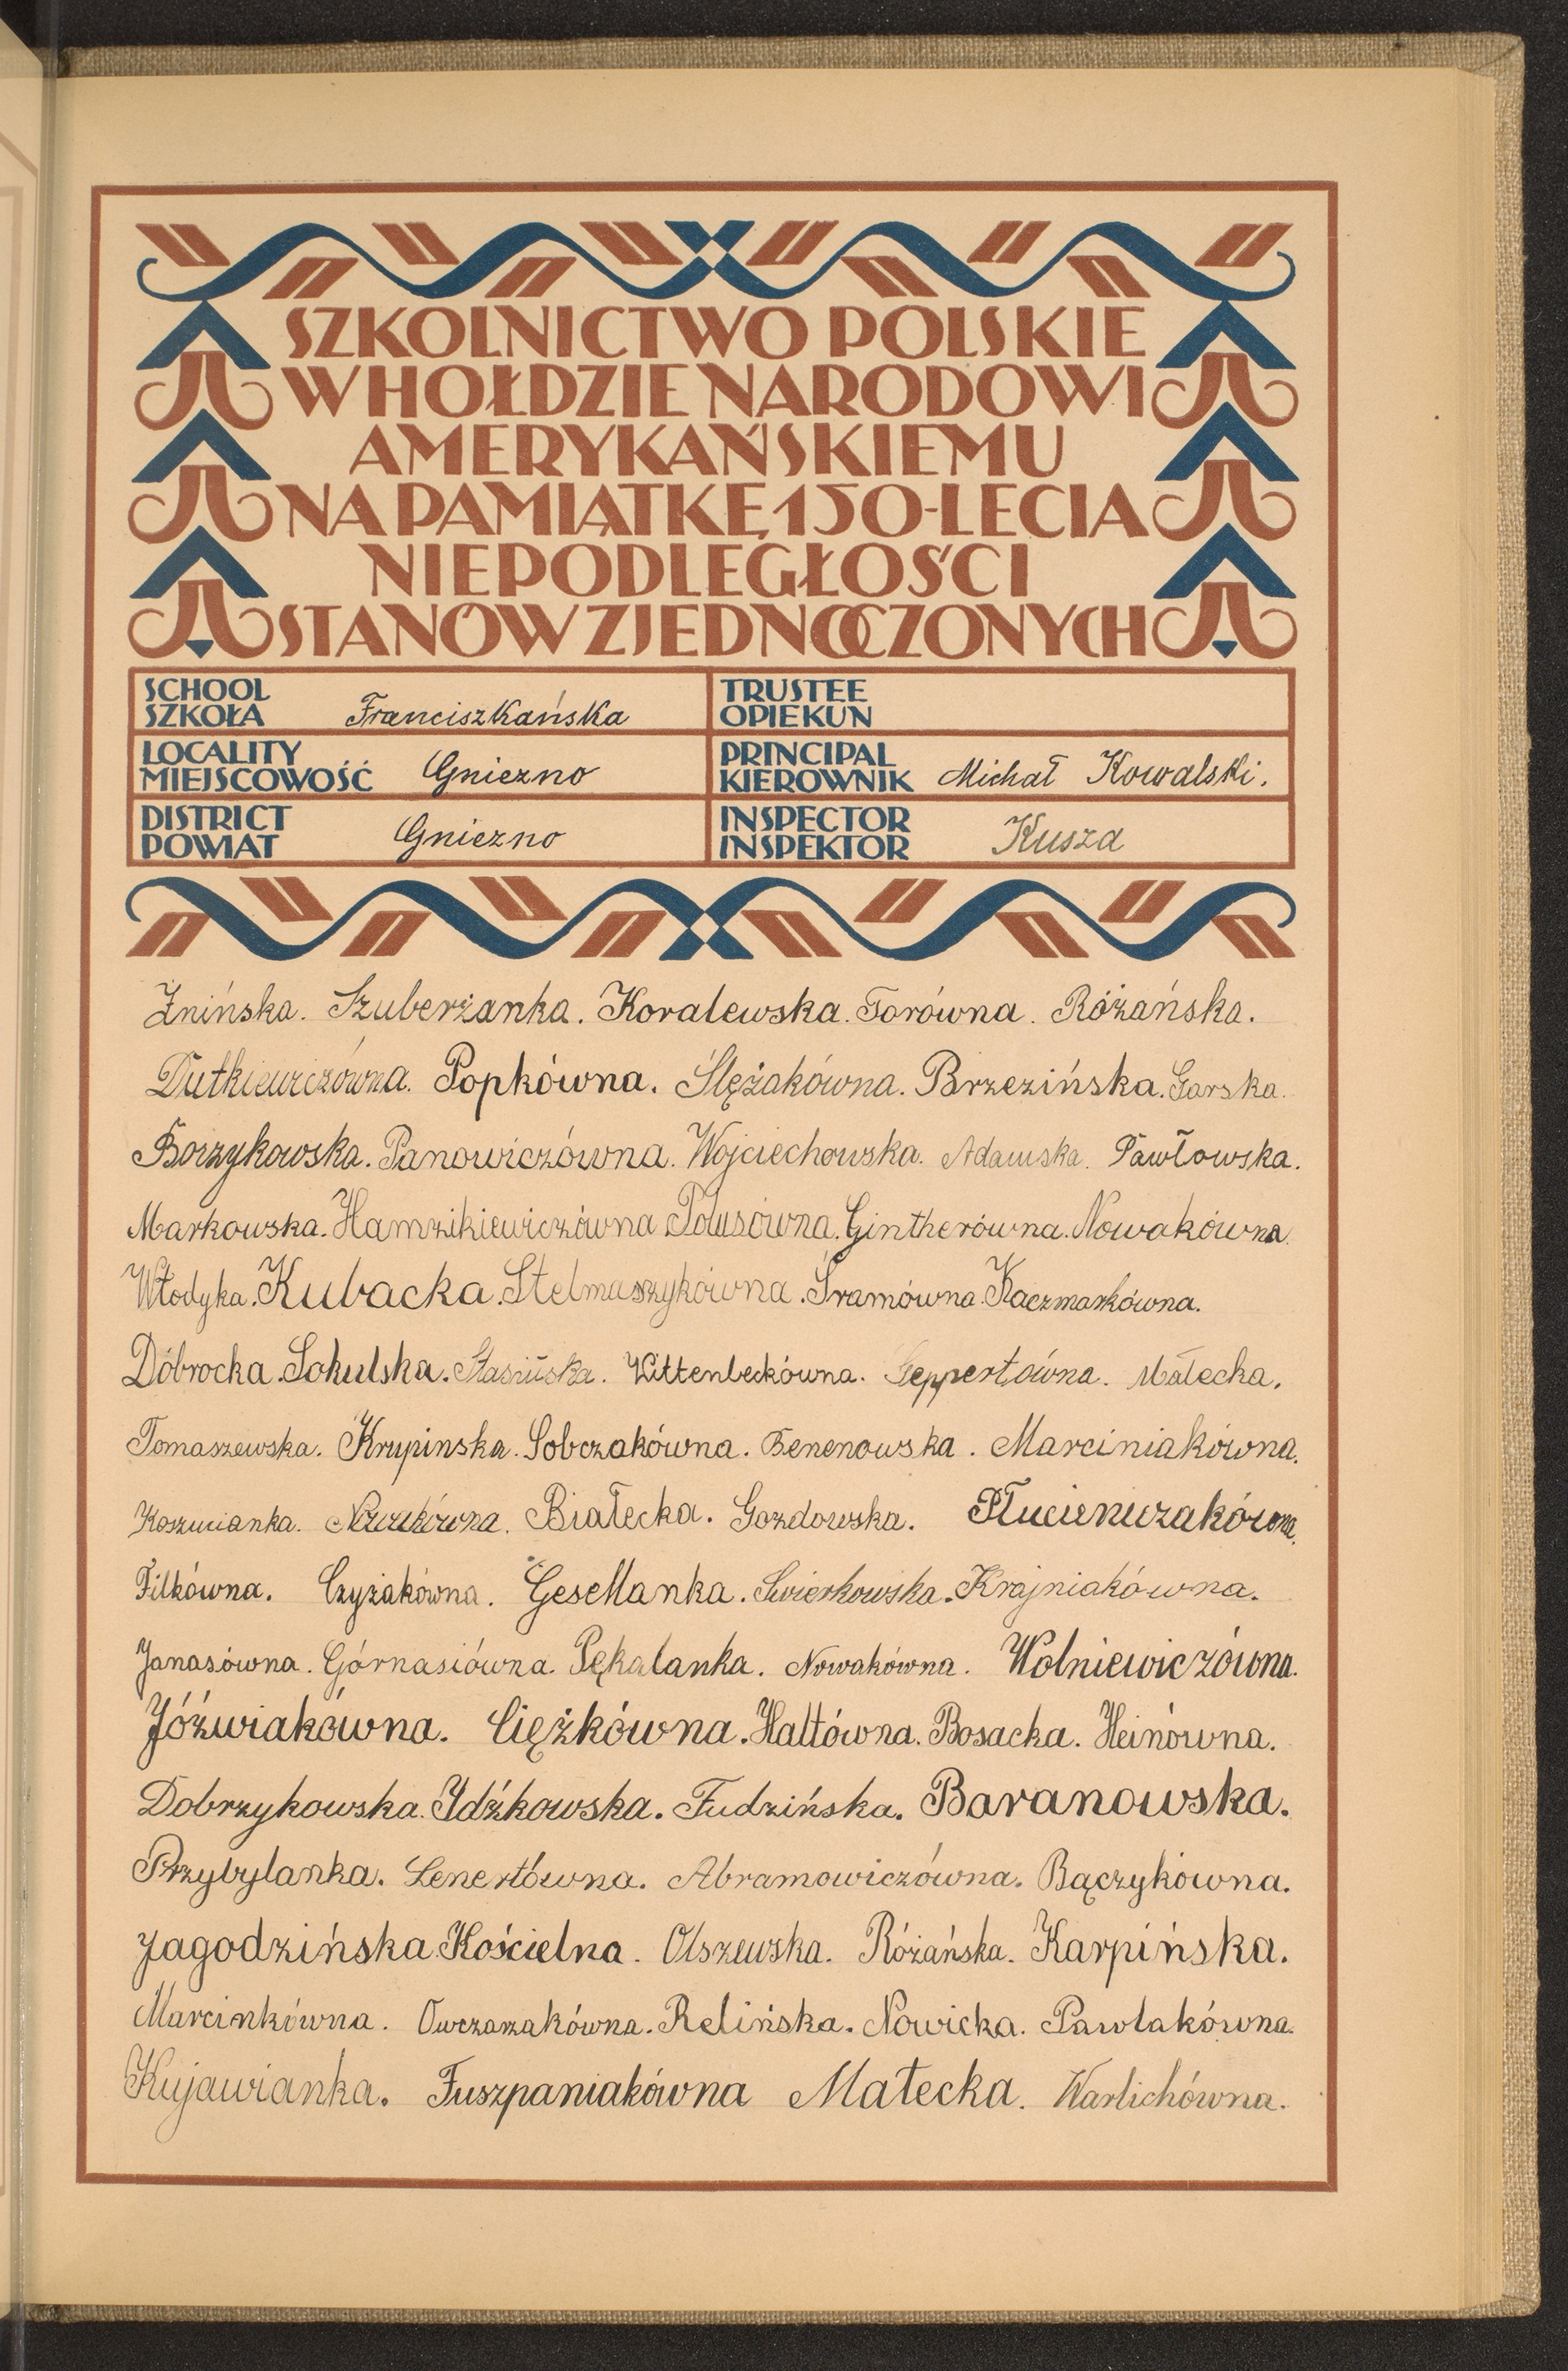 SZKOLNICTWO POLSKIE
W HOŁDZIE NARODOWI
AMERYKAŃSKIEMU
NA PAMIĄTKĘ 150-LECIA
NIEPODLEGŁOŚCI
STANÓW ZJEDNOCZONYCH
SCHOOL
SZKOŁA Franciszkańska
TRUSTEE
OPIEKUN
LOCALITY
MIEJSCOWOŚĆ Gniezno
PRINCIPAL
KIEROWNIK Michał Kowalski.
DISTRICT
POWIAT Gniezno
INSPECTOR
INSPEKTOR Kusza
Żnińska. Szuberżanka. Koralewska. Torówna. Różańska.
Dutkiewiczówna. Popkówna. Ślężakówna. Brzezińska. Garska.
Borzykowska. Panowiczówna. Wojciechowska. Adamska. Pawłowska.
Markowska. Hamzikiewiczówna Polusówna. Gintherówna. Nowakówna.
Włodyka. Kubacka. Stelmaszykówna. Śramówna. Kaczmarkówna.
Dobrocka. Sokulska. Stasińska. Wittenbeckówna. Geppertówna. Małecka.
Tomaszewska. Krupinska. Sobczakówna. Benenowska. Marciniakówna.
Koszucianka. Nowakówna. Białecka. Gozdowska. Płucieniczakówna.
Filkówna. Czyżakówna. Gesellanka. Swierkowska. Krajniakówna.
Janasówna. Górnasiówna. Pękalanka. Nowakówna. Wolniewiczówna.
Jóźwiakówna. Ciężkówna. Hałtówna. Bosacka. Heinówna.
Dobrzykowska. Idźkowska. Fudzińska. Baranowska.
Przybylanka. Lenertówna. Abramowiczówna. Bączykówna.
Jagodzińska. Kościelna. Olszewska. Różańska. Karpińska.
Marcinkówna. Owczarzakówna. Relińska. Nowicka. Pawlakówna.
Kujawianka. Fuszpaniakówna Małecka. Warlichówna.